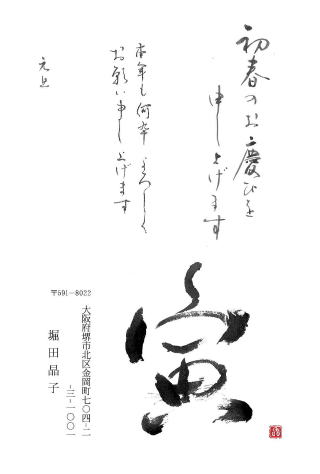 初春のお慶びを
申し上げます
本年も何卒よろしく
お願い申し上げます
元旦
寅
〒591-8022
大阪府堺市北区金岡町七〇四-二
-三-一〇〇一
堀田晶子